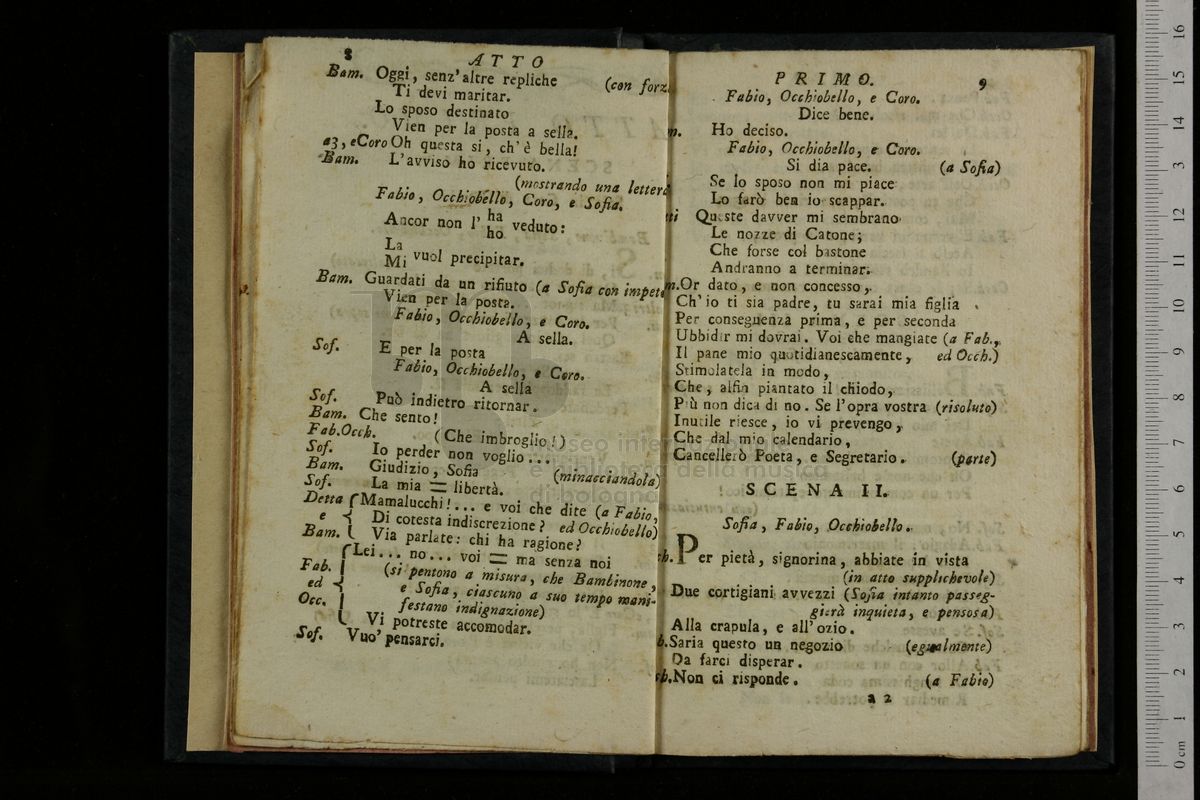 8
ATTO
Bam. Oggi, senz'altre repliche (con forz
Ti devi maritar.
Lo sposo destinato
Vien per la posta a sella.
a3, e Coro Oh questa si, ch'è bella!
Bam. L'avviso ho ricevuto.
(mostrando una lettera
Fabio, Occhiobello, Coro, e Sofia.
Ancor non l' ha veduto:
ho
La
Mi vuol precipitar.
Bam. Guardati da un rifiuto (a Sofia con impeto
Vien per la posta.
Fabio, Occhiobello, e Coro.
A sella.
Sof. E per la posta
Fabio, Occhiobello, e Coro.
A sella
Sof. Può indietro ritornar.
Bam. Che sento!
Fab. Occh. (Che imbroglio!)
Sof. Io perder non voglio...
Bam. Giudizio, Sofia (minacciandola)
Sof. La mia = libertà.
Detta Mamalucchi!... e voi che dite (a Fabio,
e Di cotesta indiscrezione? ed Occhiobello)
Bam. Via parlate: chi ha ragione?
Lei... no... voi = ma senza noi
Fab. (si pentono a misura, che Bambinone,
ed e Sofia, ciascuno a suo tempo mani-
Occ. festano indignazione)
Vi potreste accomodar.
Sof. Vuo' pensarci.
PRIMO. 9
Fabio, Occhiobello, e Coro.
Dice bene.
m. Ho deciso.
Fabio, Occhiobello, e Coro.
Si dia pace. (a Sofia)
Se lo sposo non mi piace
Lo farò ben io scappar.
ti Queste davver mi sembrano
Le nozze di Catone;
Che forse col bastone
Andranno a terminar.
m. Or dato, e non concesso,
Ch'io ti sia padre, tu sarai mia figlia
Per conseguenza prima, e per seconda
Ubbidir mi dovrai. Voi che mangiate (a Fab.,
Il pane mio quotidianescamente, ed Occh.)
Stimolatela in modo,
Che, alfin piantato il chiodo,
Più non dica di no. Se l'opra vostra (risoluto)
Inutile riesce, io vi prevengo,
Che dal mio calendario,
Cancellerò Poeta, e Segretario. (parte)
SCENA II.
Sofia, Fabio, Occhiobello.
ch. Per pietà, signorina, abbiate in vista
(in atto supplichevole)
Due cortigiani avvezzi (Sofia intanto passeg-
gierà inquieta, e pensosa)
Alla crapula, e all'ozio.
b. Saria questo un negozio (egualmente)
Da farci disperar.
ch. Non ci risponde. (a Fabio)
a 2
museo internazionale
e biblioteca della musica
di bologna
0 cm 1 2 3 4 5 6 7 8 9 10 11 12 13 14 15 16